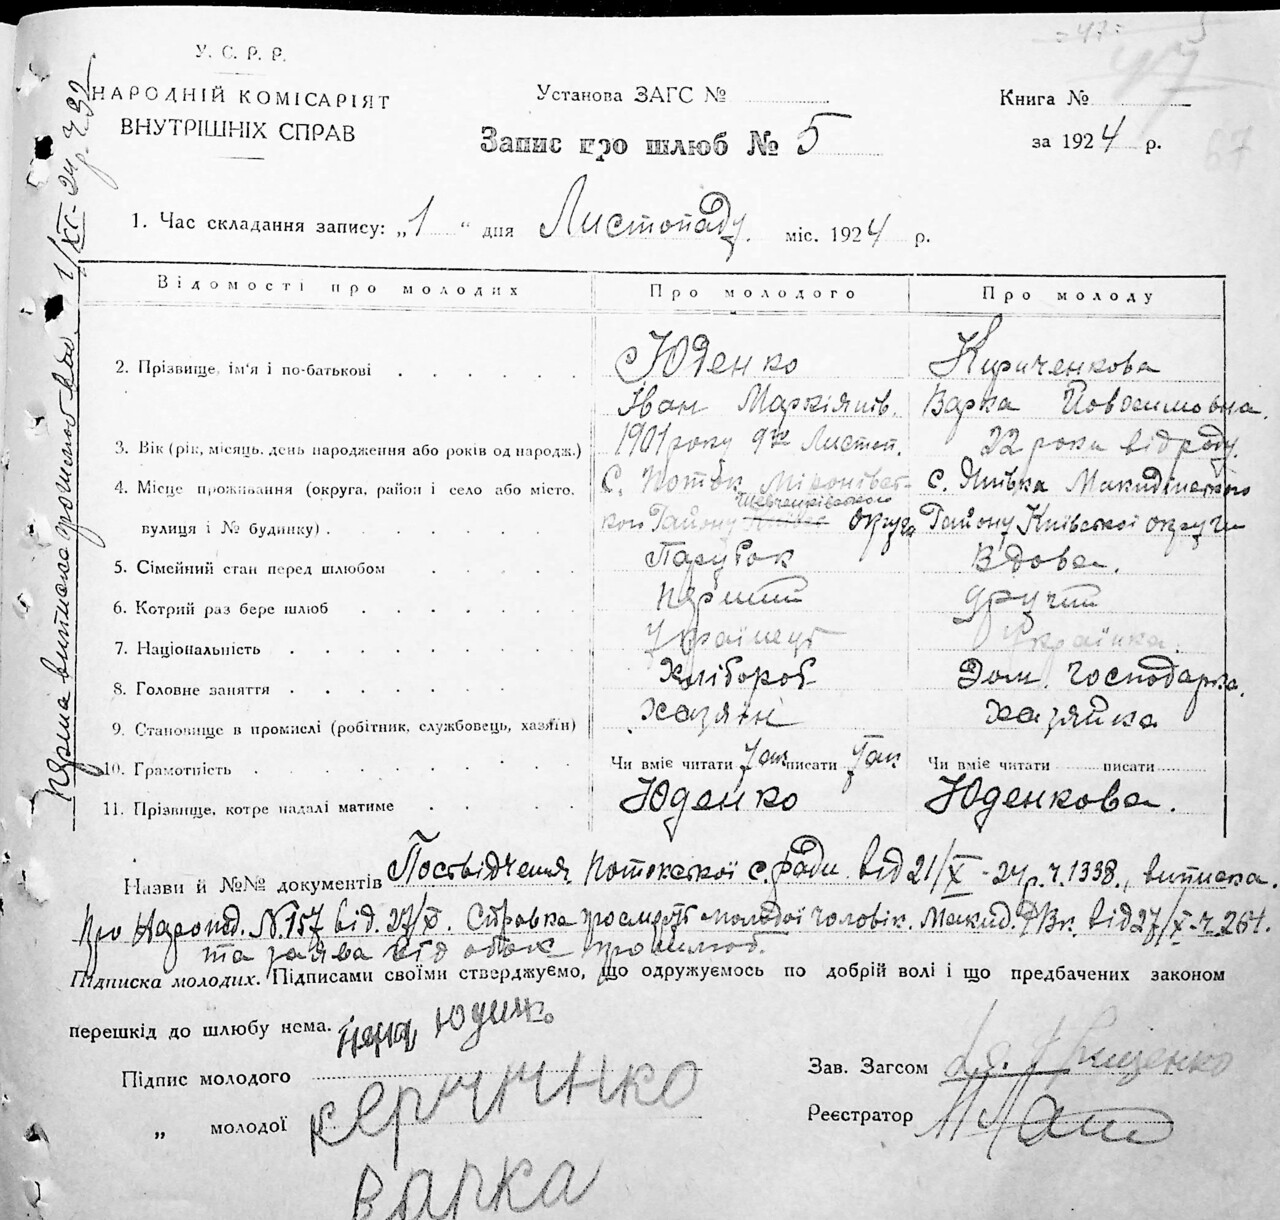 = 47 = 5
47
67
У. С. Р. Р.
НАРОДНІЙ КОМІСАРІЯТ
ВНУТРІШНІХ СПРАВ
Установа ЗАГС №
Запис про шлюб № 5
Книга №
за 1924 р.
1. Час складання запису: „1“ дня Листопаду. міс. 1924 р.
Відомості про молодих Про молодого Про молоду
2. Прізвище, ім'я і по-батькові Юденко Кириченкова
Іван Маркіянів. Варка Йовхимовна.
3. Вік (рік, місяць, день народження або років од народж.) 1901 року 9го Листоп. 22 роки від роду.
4. Місце проживання (округа, район і село або місто, С. Поток Міронівсь- с. Янівка Макидінського
вулиця і № будинку) кого Району Шевченківського округи Району Київської округи
5. Сімейний стан перед шлюбом Парубок Вдова.
6. Котрий раз бере шлюб перший другий
7. Національність Українець Українка.
8. Головне заняття Хлібороб Дом. господарка.
9. Становище в промислі (робітник, службовець, хазяїн) хазяїн хазяйка
10. Грамотність Чи вміє читати так писати так Чи вміє читати писати
11. Прізвище, котре надалі матиме Юденко Юденкова.
Назви й №№ документів Посвідчення Потокської с. ради від 21/X-24 р. ч. 1338., виписка
про народ. N. 157 від. 27/X. Справка про смерть молодої чоловік. Макид. РВК. від 27/X-ч. 264.
та заява від обох про шлюб.
Підписка молодих. Підписами своїми стверджуємо, що одружуємось по добрій волі і що предбачених законом
перешкід до шлюбу нема.
Підпис молодого Юденко
„ молодої
Варка
Зав. Загсом Грищенко
Реєстратор
перша виписка 1/XI-24 р.